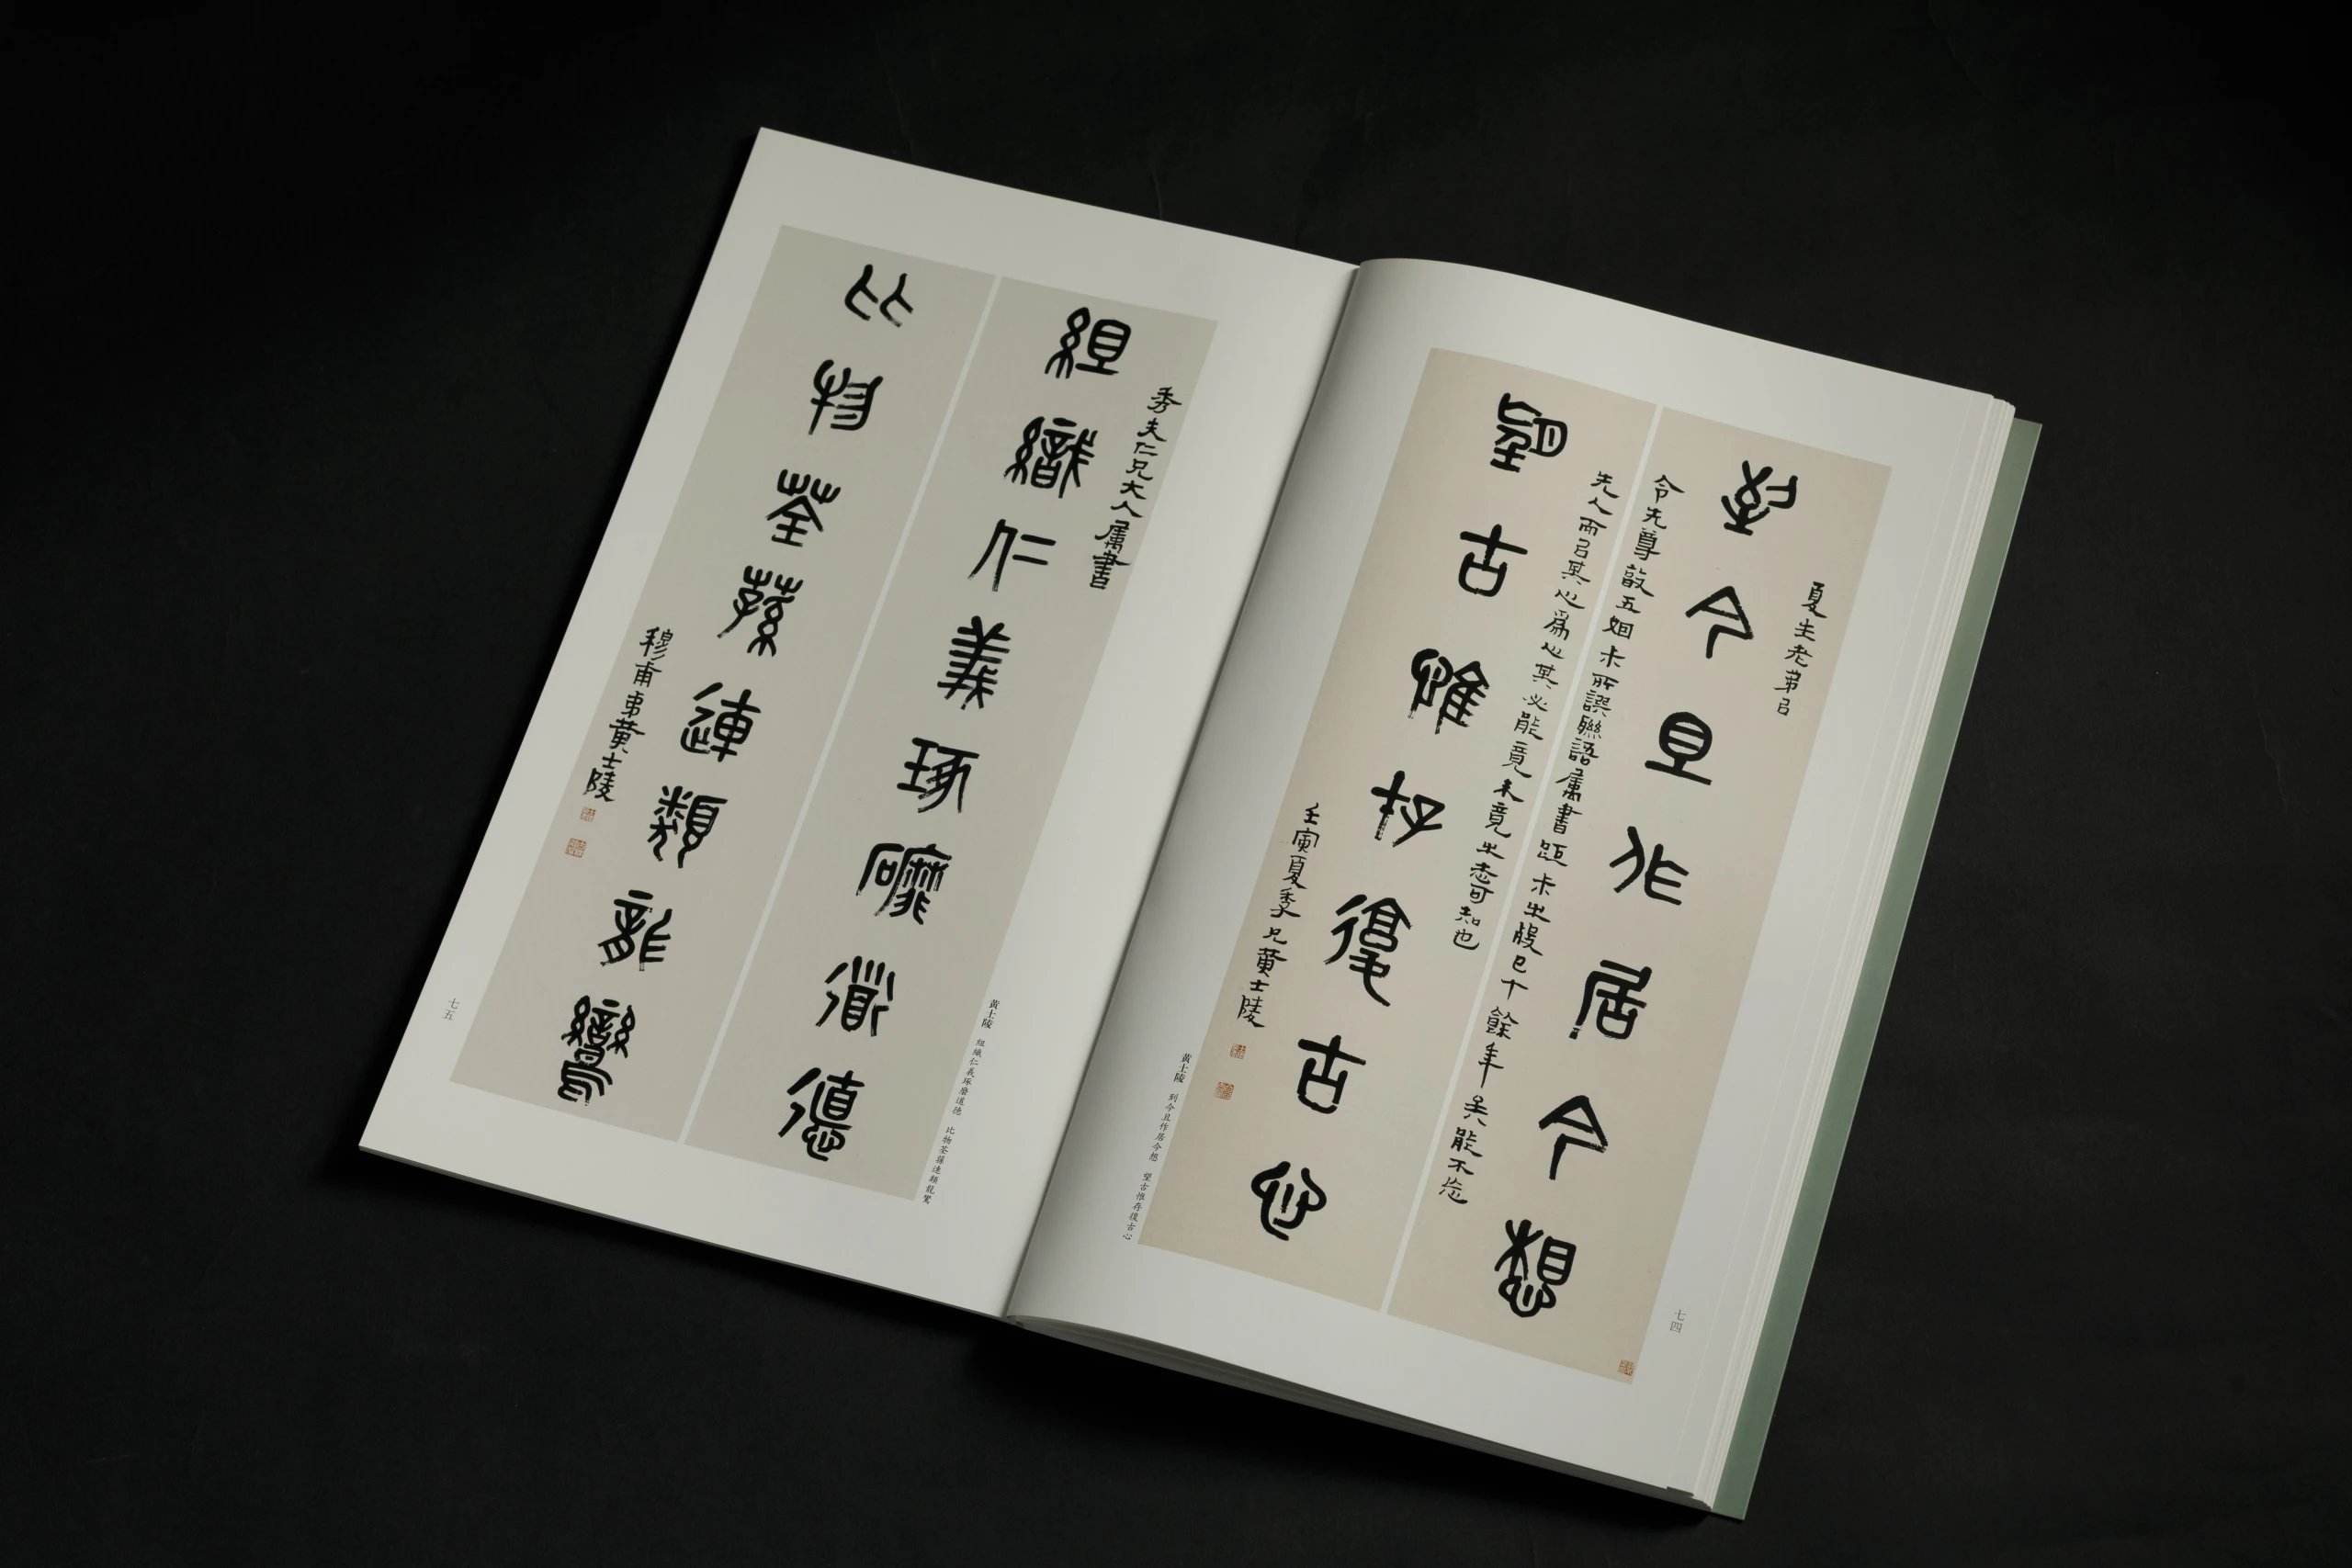 到今且作居今想
夏生老弟㠯
令先尊敬五姻丈所譔聯語属書距丈之殁已十餘年矣能不忘
先人而㠯其心爲心其必能竟未竟之志可知也
望古惟存復古心
壬寅夏季兄黄士陵
黄士陵 到今且作居今想 望古惟存復古心
七四
組織仁義琢磨道德
秀夫仁兄大人属書
比物荃蓀連類龍鸞
穆甫弟黄士陵
黄士陵 組織仁義琢磨道德 比物荃蓀連類龍鸞
七五